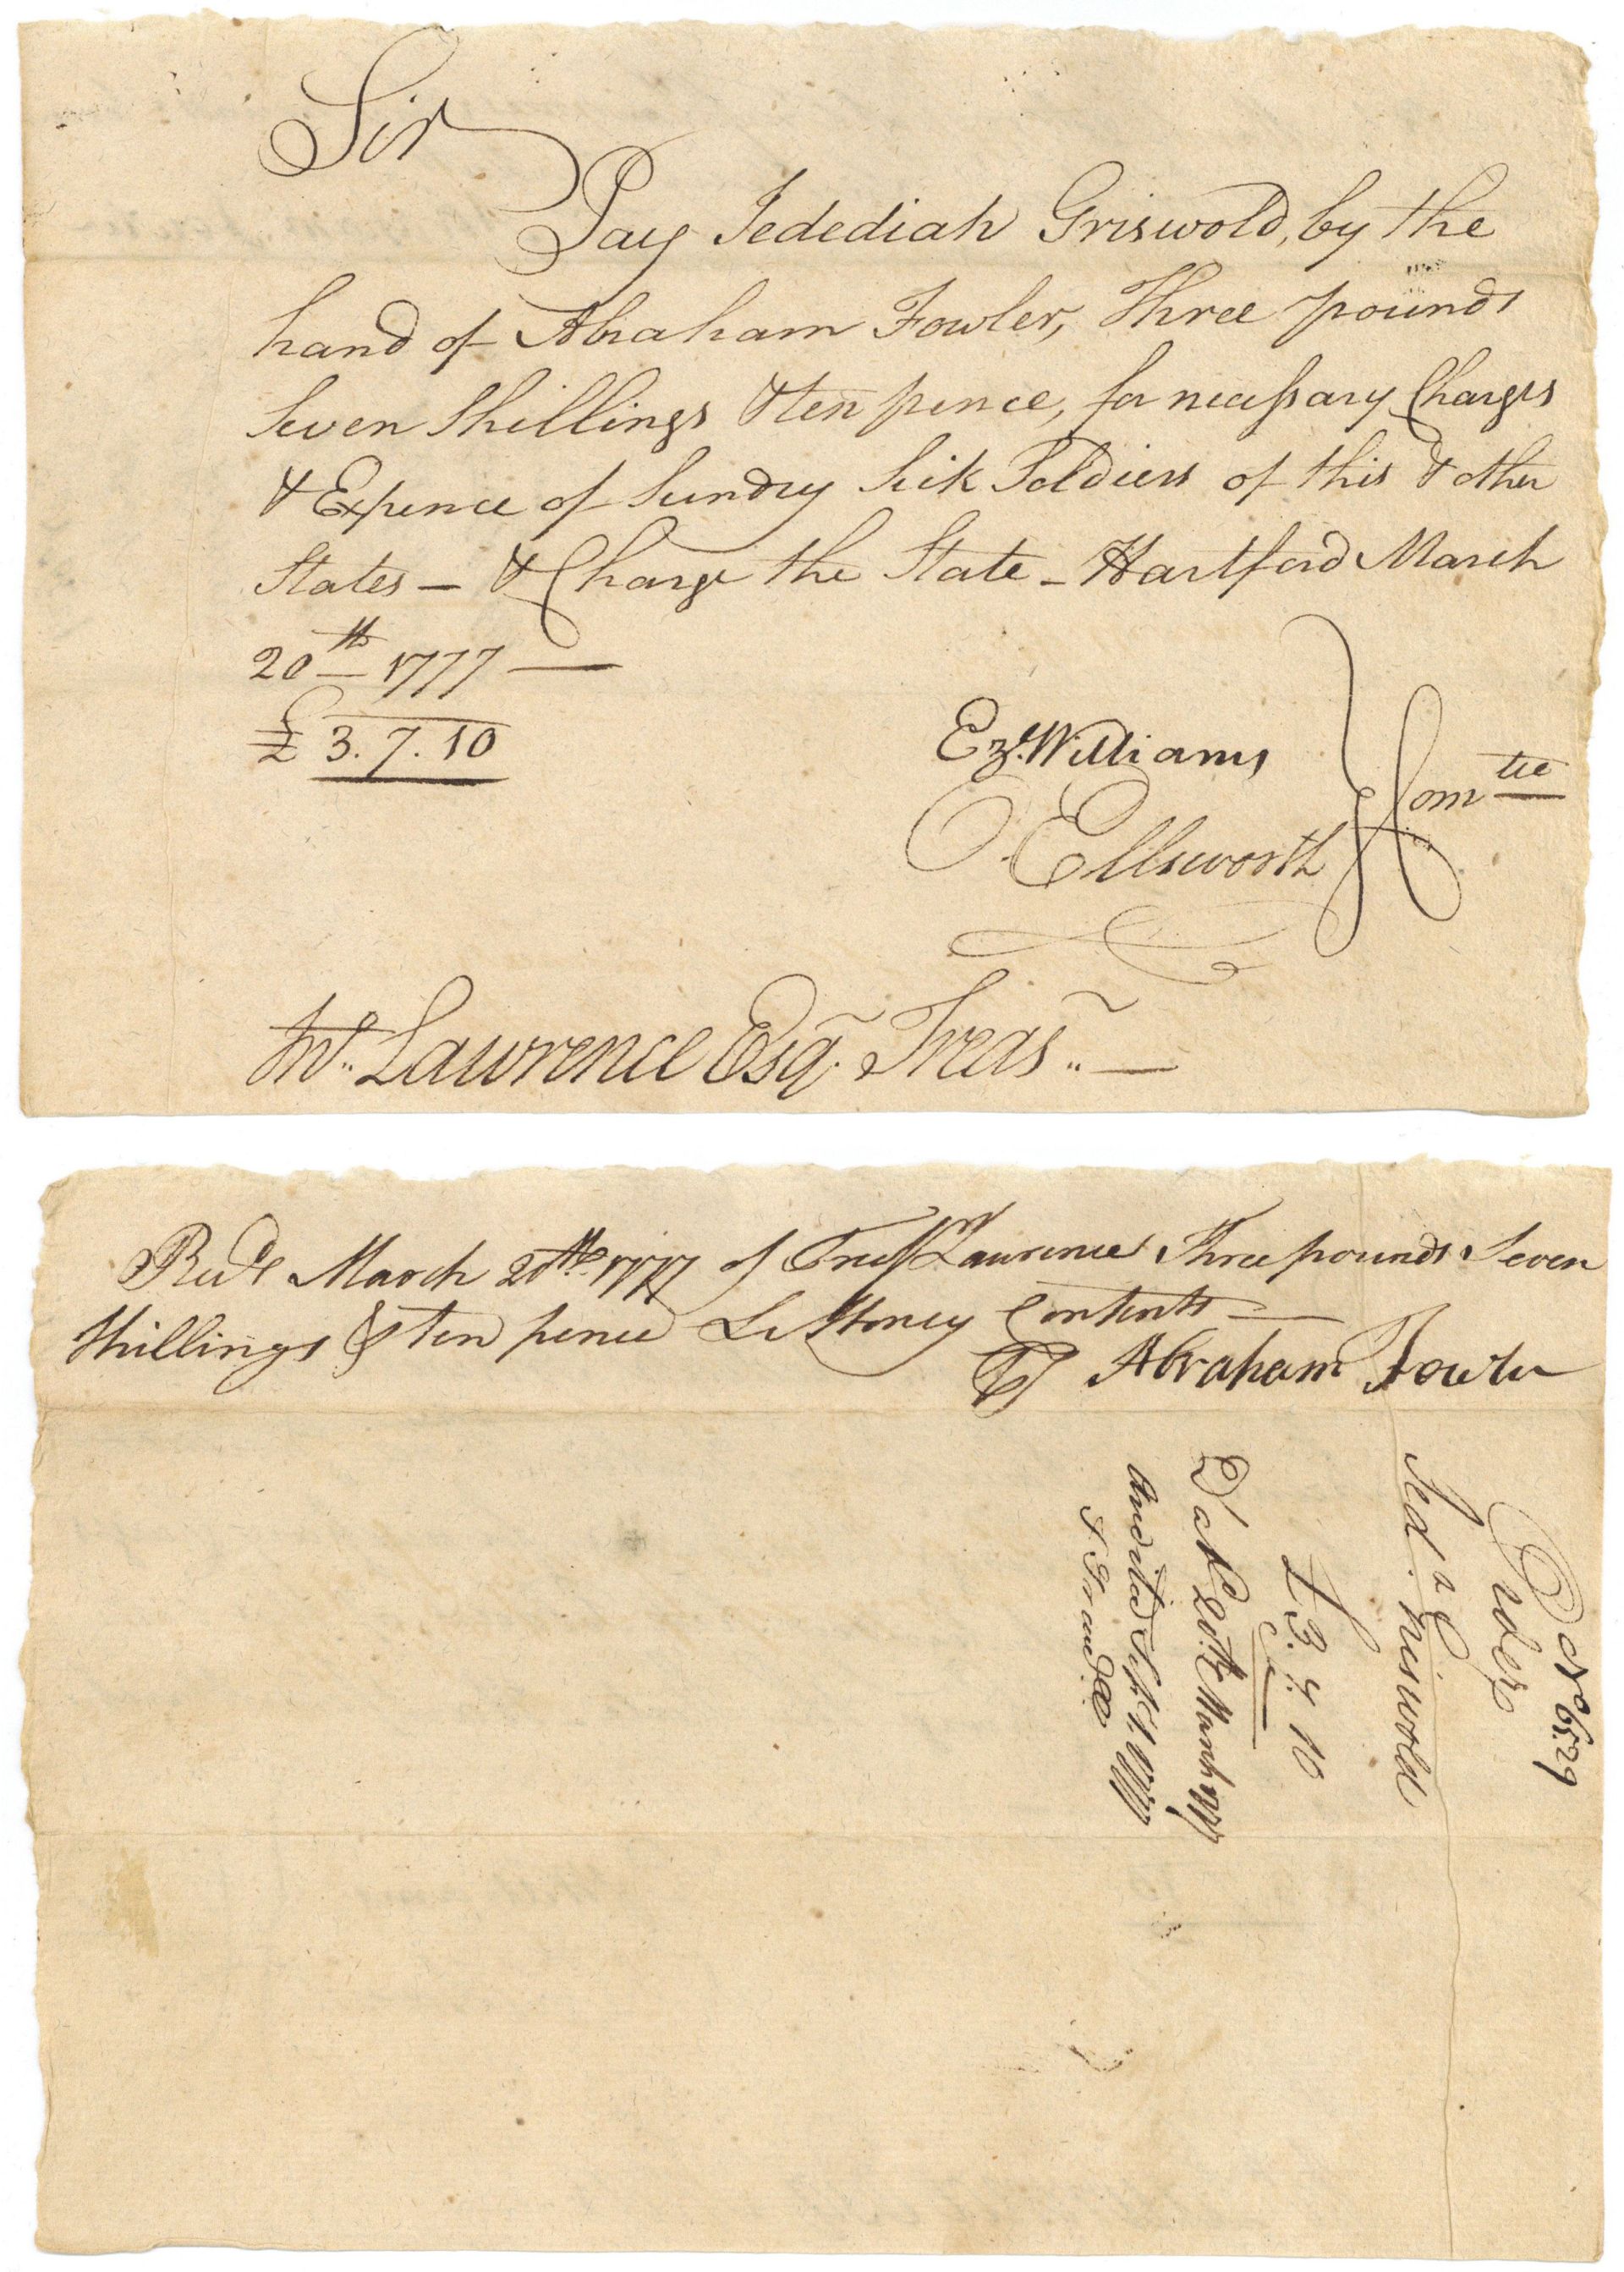 Sir
Pay Jedediah Griswold, by the
hand of Abraham Fowler, Three pounds
Seven Shillings & ten pence, for necessary Charges
& Expence of Sundry Sick Soldiers of this & other
States — & Charge the State — Hartford March
20th 1777 —
£ 3. 7. 10
Ezl. Williams
O. Ellsworth
Comtee
Jno. Lawrence Esqr. Treasr. —
Recd March 20th 1777 of Treasr Lawrence Three pounds Seven
Shillings & ten pence L Money Contents —
Abraham Fowler
No 6529
Order
Jed.h Griswold
£ 3. 7. 10
Dat.d 20th March 1777
Audited Sept. 1. 1777